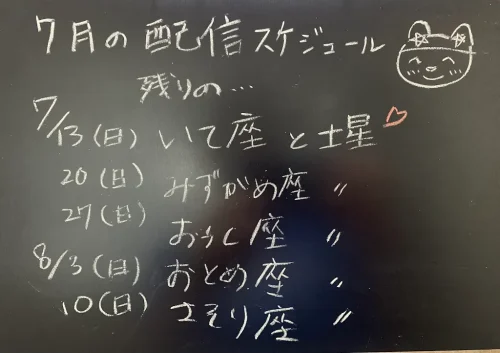 7月の配信スケジュール
残りの…
7/13(日)いて座と土星♡
20(日)みずがめ座 〃
27(日)おうし座 〃
8/3(日)おとめ座 〃
10(日)さそり座 〃